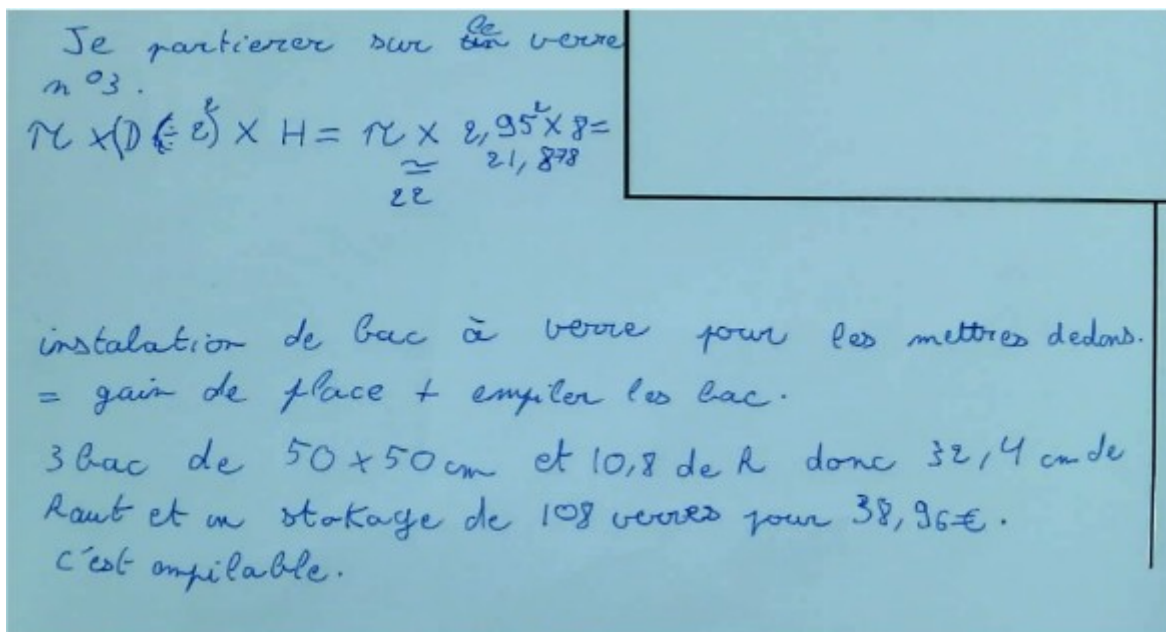 Je partierer sur ce verre
n°3.
π x (D ÷ 2)² x H = π x 2,95² x 8 =
≃ 21,878
22
instalation de bac à verre pour les mettres dedans.
= gain de place + empiler les bac.
3 bac de 50 x 50 cm et 10,8 de h donc 32,4 cm de
haut et un stokage de 108 verres pour 38,96 €.
c'est empilable.